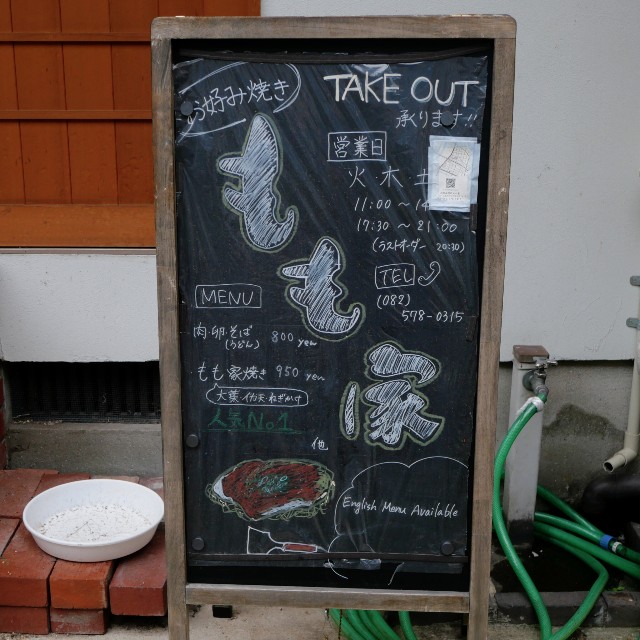 お好み焼き
TAKE OUT
承ります!!
もも家
営業日
火 木 土
11:00 ~ 14
17:30 ~ 21:00
(ラストオーダー 20:30)
TEL
(082)
578-0315
MENU
肉・卵・そば 800 yen
(うどん)
もも家焼き 950 yen
大葉 イカ天 ねぎかけ
人気No.1
English Menu Available